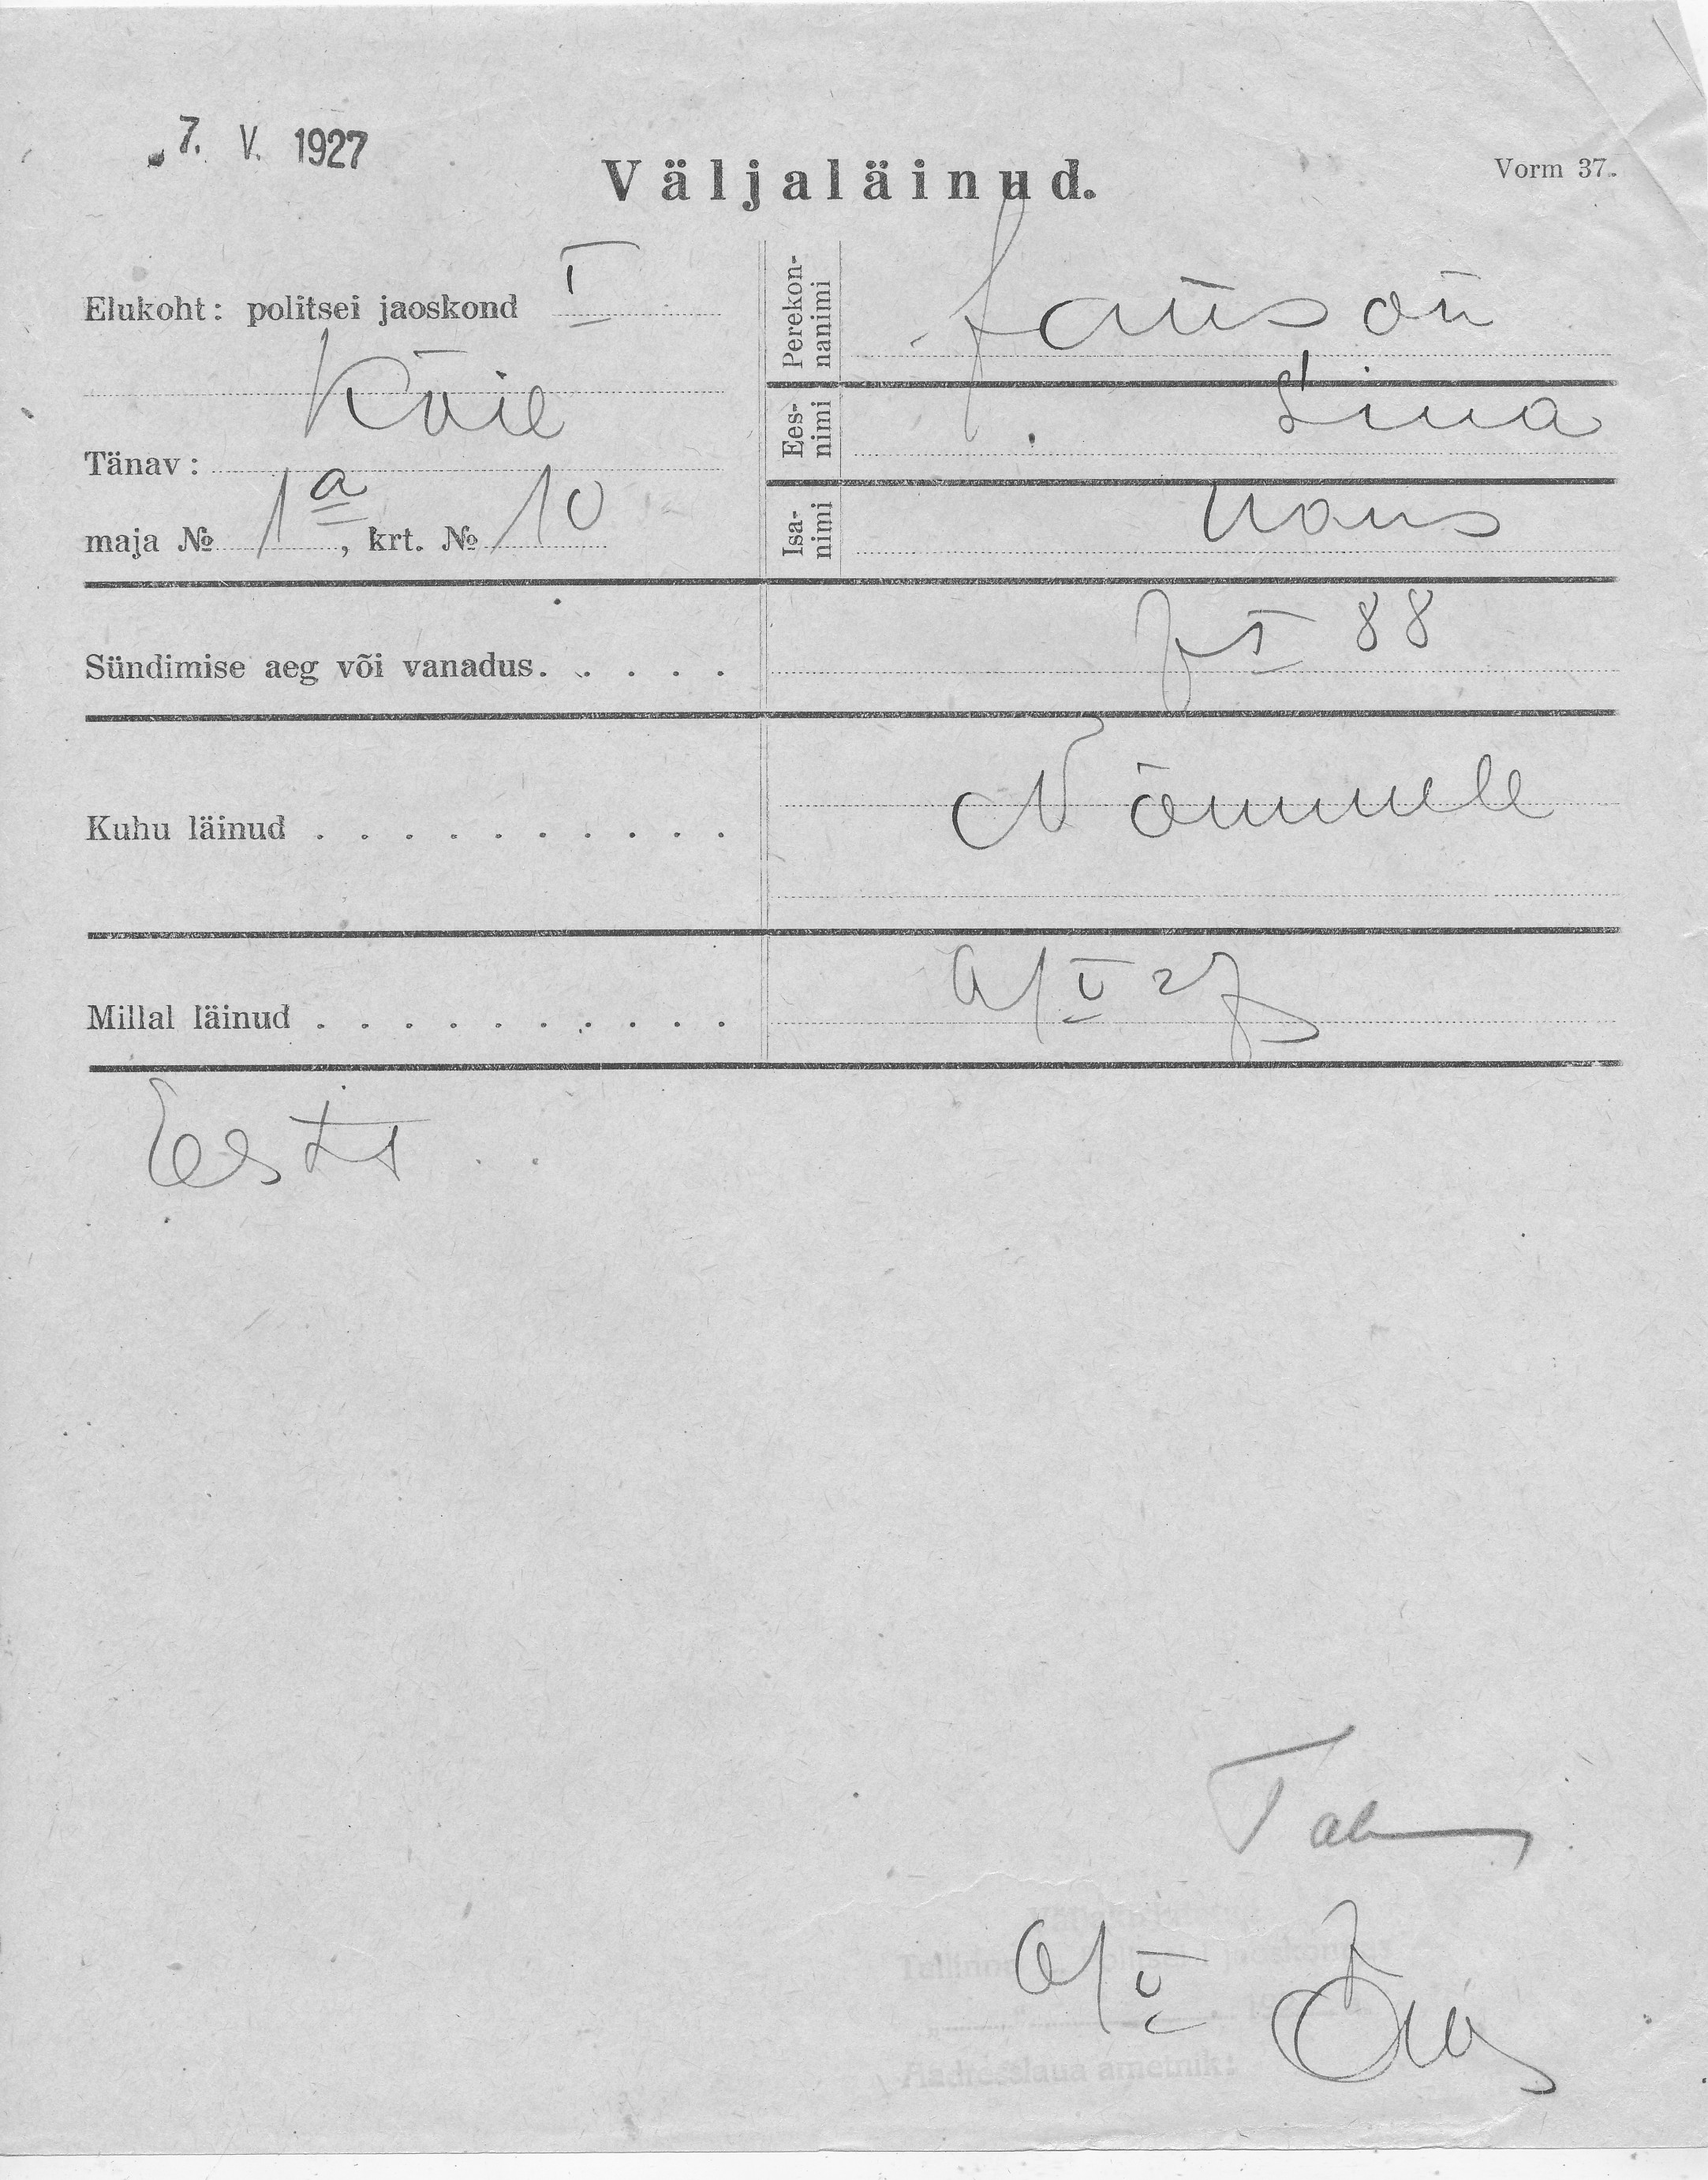 7. V. 1927
Väljaläinud.
Vorm 37.
Elukoht: politsei jaoskond I
Köie
Tänav:
maja № 1a, krt. № 10
Perekon-
nanimi
Janson
Ees-
nimi
Liina
Isa-
nimi
Hans
Sündimise aeg või vanadus. . . . .
I 88
Kuhu läinud . . . . . . . . . .
Nõmmele
Millal läinud . . . . . . . . . .
V 27
Eesti
Tallinna politsei jaoskonnas
Aadresslaua ametnik: